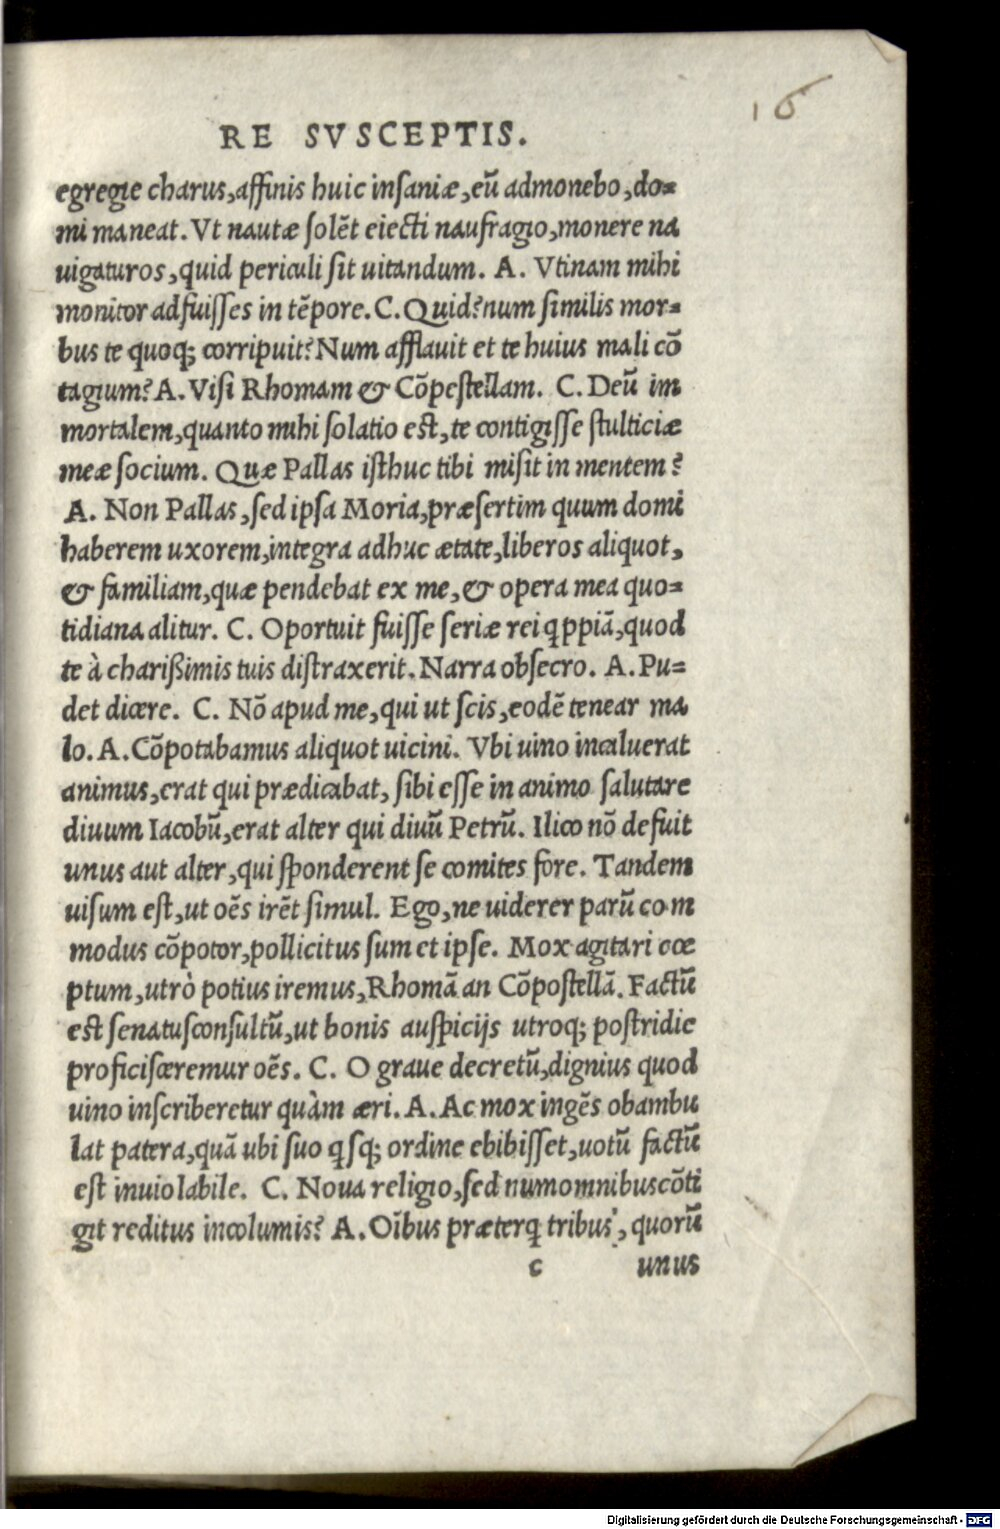 16
RE SVSCEPTIS.
egregie charus, affinis huic insaniæ, eũ admonebo, do=
mi maneat. Vt nautæ solẽt eiecti naufragio, monere na
uigaturos, quid periculi sit uitandum. A. Vtinam mihi
monitor adfuisses in tẽpore. C. Quid? num similis mor=
bus te quoq; corripuit? Num afflauit et te huius mali cõ
tagium? A. Visi Rhomam & Cõpestellam. C. Deũ im
mortalem, quanto mihi solatio est, te contigisse stulticiæ
meæ socium. Quæ Pallas isthuc tibi misit in mentem?
A. Non Pallas, sed ipsa Moria, præsertim quum domi
haberem uxorem, integra adhuc ætate, liberos aliquot,
& familiam, quæ pendebat ex me, & opera mea quo=
tidiana alitur. C. Oportuit fuisse seriæ rei qppiã, quod
te à charißimis tuis distraxerit. Narra obsecro. A. Pu=
det dicere. C. Nõ apud me, qui ut scis, eodẽ tenear ma
lo. A. Cõpotabamus aliquot uicini. Vbi uino incaluerat
animus, erat qui prædicabat, sibi esse in animo salutare
diuum Iacobũ, erat alter qui diuũ Petrũ. Ilico nõ defuit
unus aut alter, qui sponderent se comites fore. Tandem
uisum est, ut oẽs irẽt simul. Ego, ne uiderer parũ com
modus cõpotor, pollicitus sum et ipse. Mox agitari cœ
ptum, utrò potius iremus, Rhomã an Cõpostellã. Factũ
est senatusconsultũ, ut bonis auspicijs utroq; postridie
proficisceremur oẽs. C. O graue decretũ, dignius quod
uino inscriberetur quàm æri. A. Ac mox ingẽs obambu
lat patera, quã ubi suo qsq; ordine ebibisset, uotũ factũ
est inuiolabile. C. Noua religio, sed num omnibus cõti
git reditus incolumis? A. Oĩbus præterq̃ tribus, quorũ
c unus
Digitalisierung gefördert durch die Deutsche Forschungsgemeinschaft - DFG